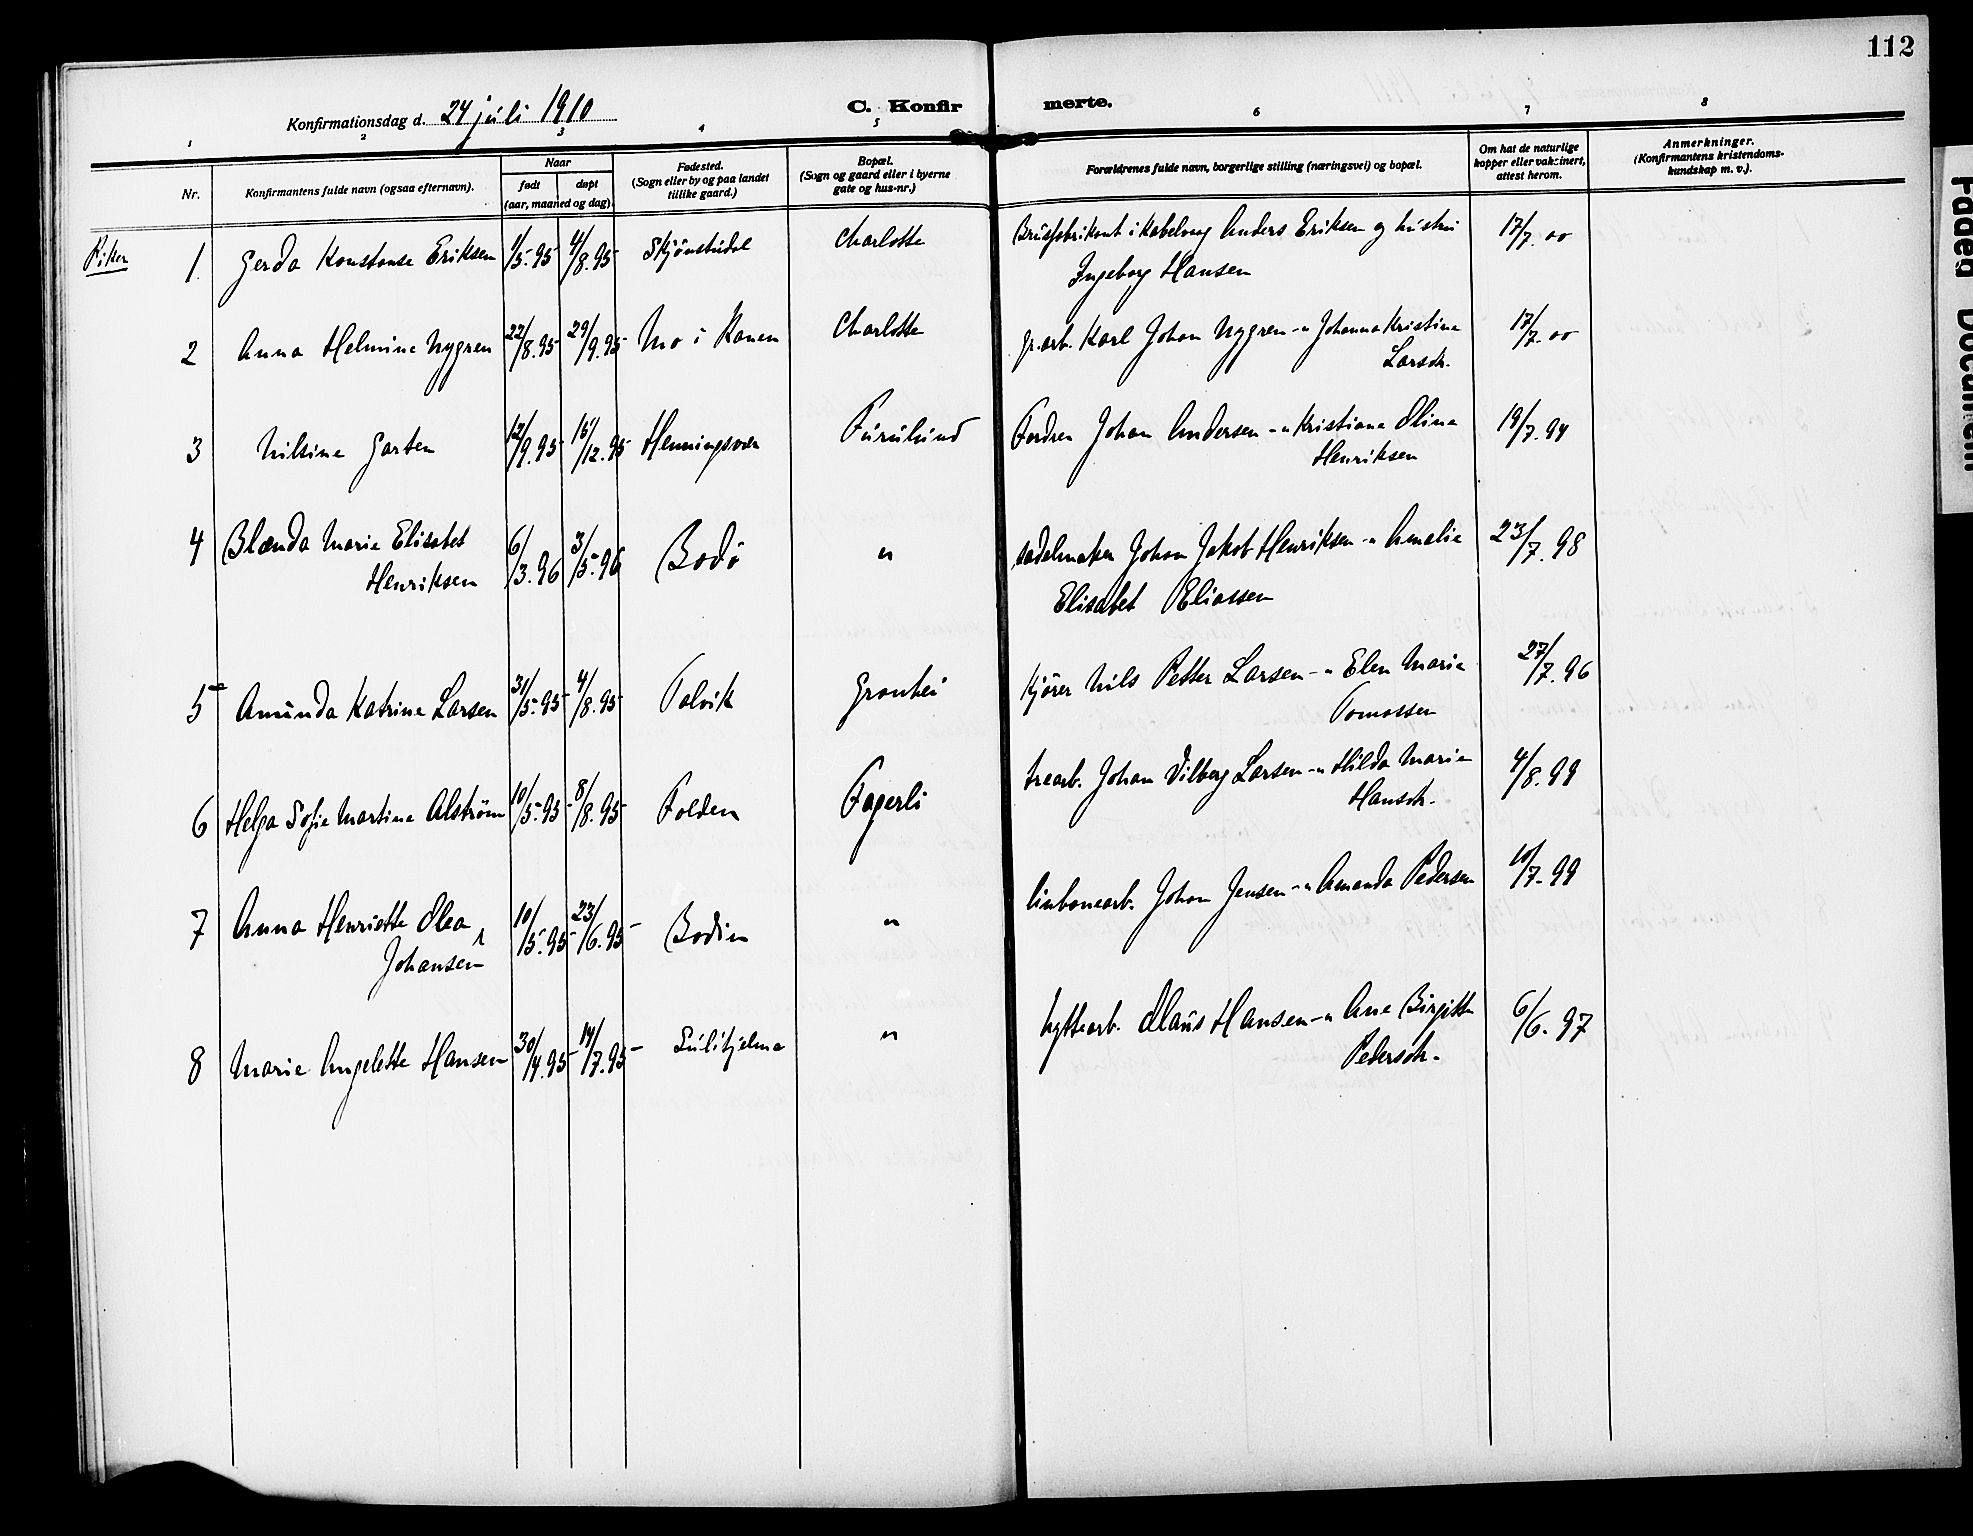 112
Konfirmationsdag d. 24 juli 1910
C. Konfirmerte.
1 2 3 4 5 6 7 8
Nr.
Konfirmantens fulde navn (ogsaa efternavn).
Naar
født døpt
(aar, maaned og dag).
Fødested.
(Sogn eller by og paa landet
tillike gaard.)
Bopæl.
(Sogn og gaard eller i byerne
gate og hus-nr.)
Forældrenes fulde navn, borgerlige stilling (næringsvei) og bopæl.
Om hat de naturlige
kopper eller vakzinert,
attest herom.
Anmerkninger.
(Konfirmantens kristendoms-
kundskap m. v.).
Piker
1 Gerda Konstanse Eriksen 1/5.95 4/8.95 Skjønstudal Charlotte Brusfabrikant i Kabelvaag Anders Eriksen og hustru 17/7.00
Ingeborg Hansen
2 Anna Helmine Nygren 22/8.95 29/9.95 Mo i Ranen Charlotte gr.arb. Karl Johan Nygren -"- Johanna Kristine 17/7.00
Larsdr.
3 Nilsine Garten 12/9.95 15/12.95 Henningsvær Furulund Johan Andersen -"- Kristiane Oline 19/7.97
Henriksen
4 Blænda Marie Elisabet 6/3.96 3/5.96 Bodø " sadelmaker Johan Jakob Henriksen -"- Amalie 23/7.98
Henriksen Elisabet Eliassen
5 Amunda Katrine Larsen 31/5.95 4/8.95 Talvik Granhei kjører Nils Petter Larsen -"- Elen Marie 27/7.96
Tomassen
6 Helga Sofie Martine Alstrøm 10/5.95 8/8.95 Folden Fagerli trearb. Johan Vilberg Larsen -"- Hilda Marie 4/8.99
Hansdr.
7 Anna Henriette Olea 10/5.95 23/6.95 Bodin " linbanearb. Johan Jensen -"- Amanda Pedersen 10/7.99
Johansen
8 Marie Angelette Hansen 30/4.95 14/7.95 Sulitjelma " hyttearb. Olaus Hansen -"- Ane Birgitte 6/6.97
Pedersdr.
Faded Document